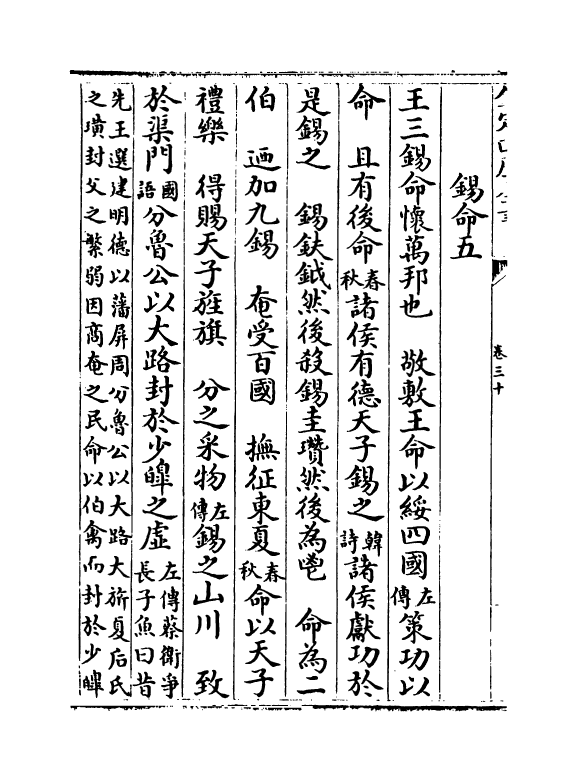 卷三十
錫命五
王三錫命懷萬邦也　敬敷王命以綏四國左傳策功以
命　且有後命春秋諸侯有德天子錫之韓詩諸侯獻功於
是錫之　錫鈇鉞然後殺錫圭瓚然後為鬯　命為二
伯　迺加九錫　奄受百國　撫征東夏春秋命以天子
禮樂　得賜天子旌旗　分之采物左傳錫之山川　致
於渠門國語分魯公以大路封於少皥之虛左傳蔡衛爭長子魚曰昔
先王選建明德以藩屏周分魯公以大路大旂夏后氏
之璜封父之繁弱因商奄之民命以伯禽而封於少皥